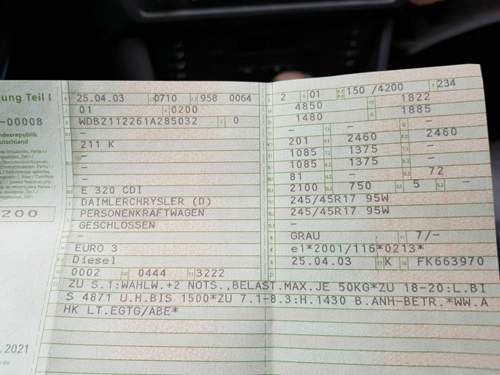 ung Teil I
25.04.03 0710 958 0064 2 01 150 /4200 234
01 0200 4850 1822
-00008 WDB2112261A285032 0 1480 1885
ndesrepublik - - -
eutschland 211 K 201 2460 2460
- 1085 1375 -
- 1085 1375 -
- 81 - 72
E 320 CDI 2100 750 5 -
200 DAIMLERCHRYSLER (D) 245/45R17 95W
PERSONENKRAFTWAGEN 245/45R17 95W
GESCHLOSSEN -
- GRAU 7/-
EURO 3 e1*2001/116*0213*
Diesel 25.04.03 K FK663970
0002 0444 3222
ZU S.1:WAHLW.+2 NOTS.,BELAST.MAX.JE 50KG*ZU 18-20:L.BI
S 4871 U.H.BIS 1500*ZU 7.1-8.3:H.1430 B.ANH-BETR.*WW.A
HK LT.EGTG/ABE*
.2021